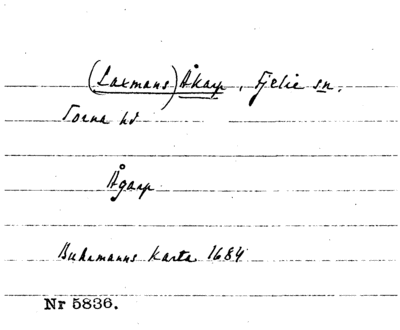 (Laxmans) Åkarp, Fjelie sn.
Torna hd
Ågarp
Buhrmanns karta 1684
Nr 5836.